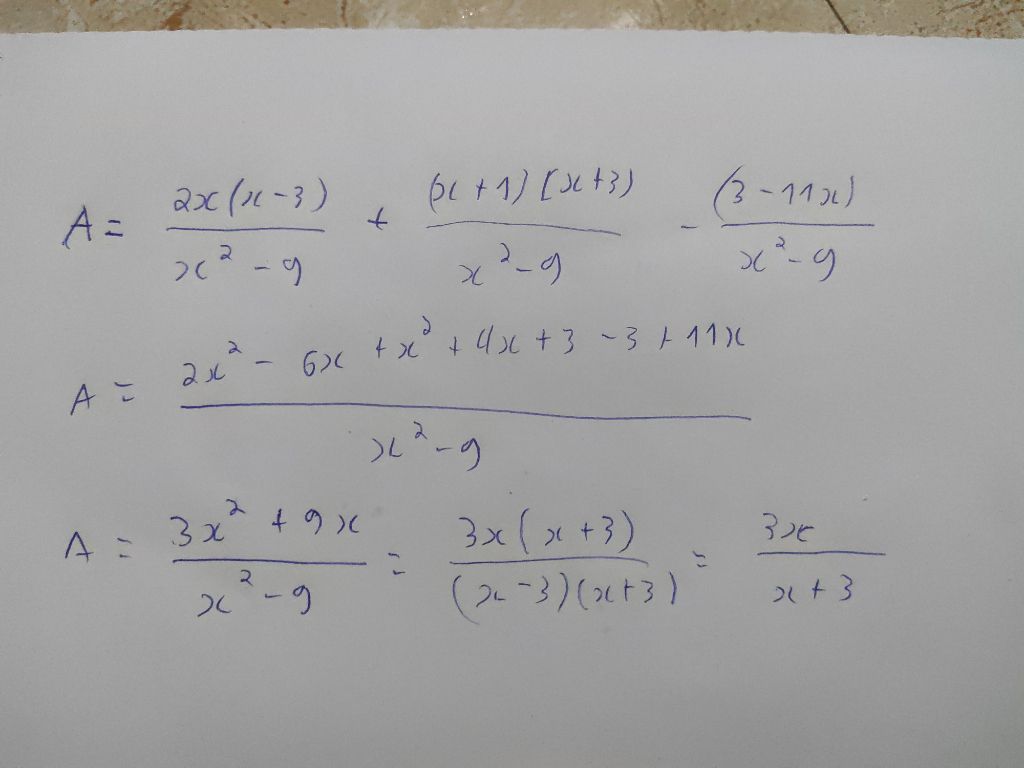 A = \frac{2x(x-3)}{x^2-9} + \frac{(x+1)(x+3)}{x^2-9} - \frac{(3-11x)}{x^2-9}
A = \frac{2x^2-6x+x^2+4x+3-3+11x}{x^2-9}
A = \frac{3x^2+9x}{x^2-9} = \frac{3x(x+3)}{(x-3)(x+3)} = \frac{3x}{x+3}